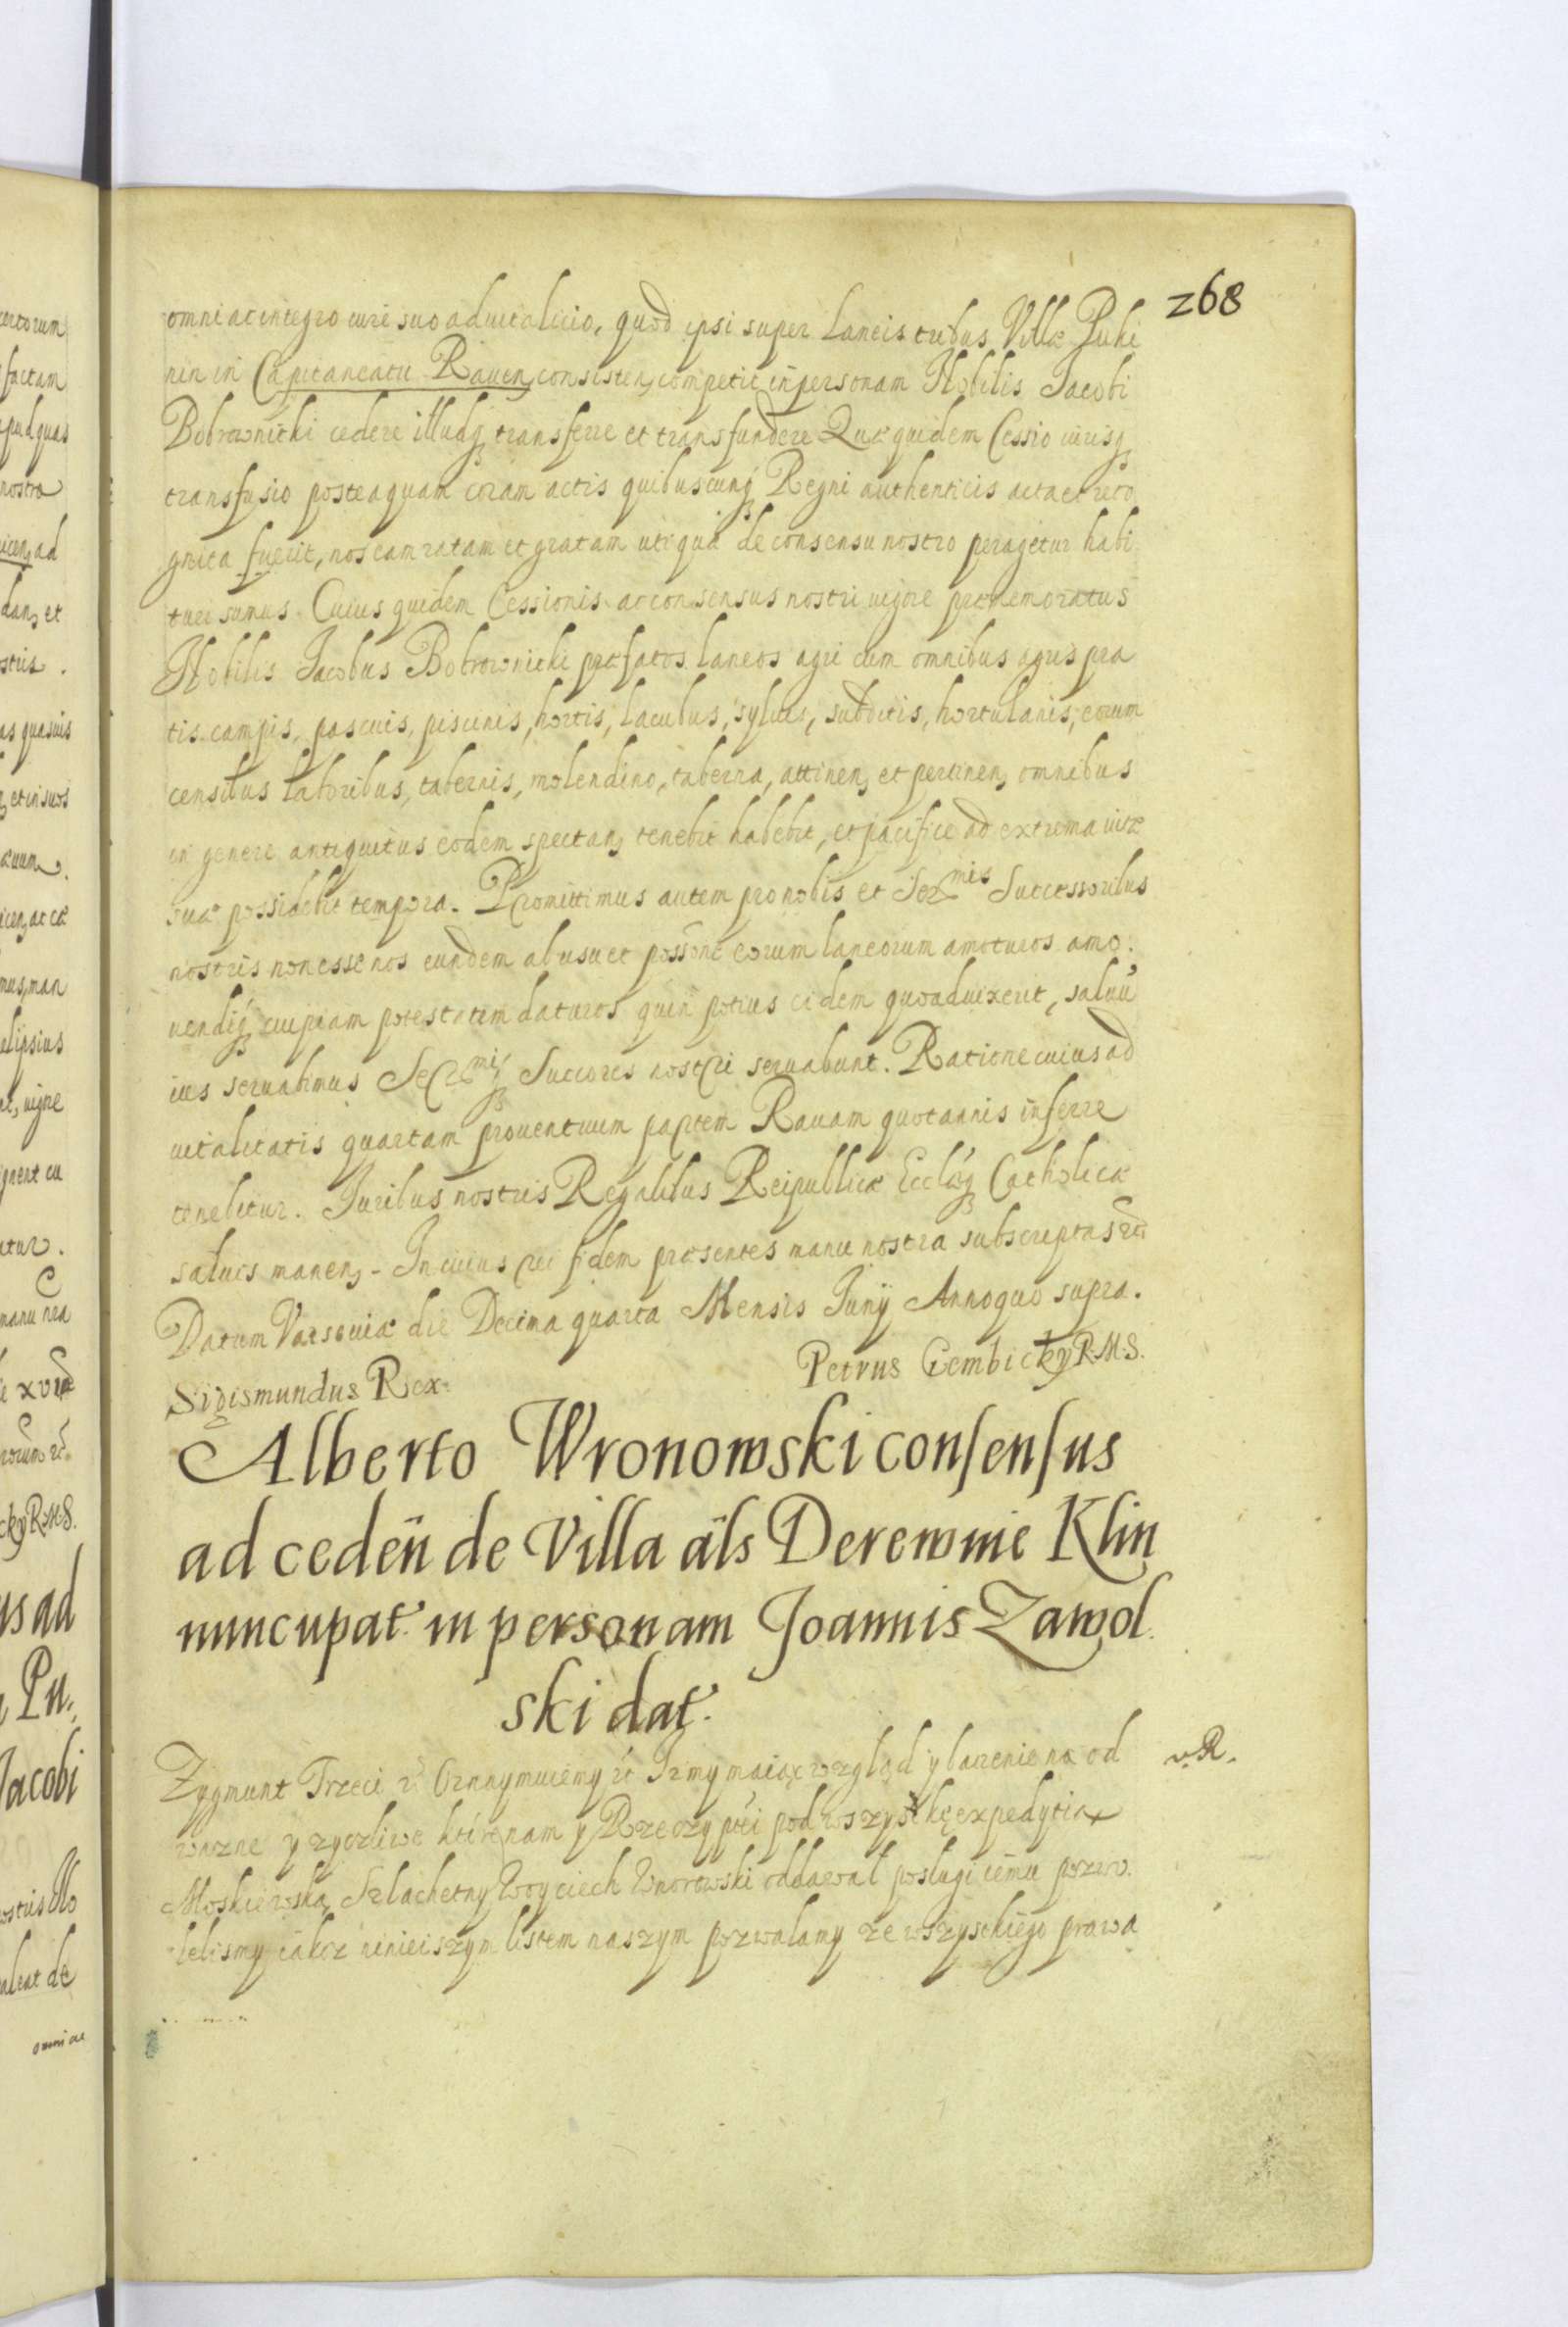 268
omni ac integro iure suo aduitalicio, quod ipsi super laneis tribus Villæ Puki
nin in Capitaneatu Rauen, consisten, competit in personam Nobilis Jacobi
Bobrownicki cedere illudq transferre et transfundere Quæ quidem Cessio iurisq
transfusio posteaquam coram actis quibuscunq Regni authenticis acta et reco
gnita fuerit, nos eam ratam et gratam utiqua de consensu nostro peragetur habi
turi sumus. Cuius quidem Cessionis ac consensus nostri uigore præmemoratus
Nobilis Jacobus Bobrownicki præfatos laneos agri cum omnibus agris pra
tis campis, pascuis, piscinis, hortis, lacubus, syluis, subditis, hortulanis, eorum
censibus laboribus, tabernis, molendino, taberna, attinen, et pertinen, omnibus
in genere antiquitus eodem spectan, tenebit habebit, et pacifice ad extrema uitæ
suæ possidebit tempora. Promittimus autem pro nobis et Sermis Successoribus
nostris non esse nos eundem ab usu et possone eorum laneorum amoturos amo.
uendiq cuipiam potestatem daturos quin potius eidem quoad uixerit, saluu
ius seruabimus Sermiq Succores nostri seruabunt. Ratione cuius ad
uitalitatis quartam prouentuum partem Rauam quotannis inferre
tenebitur. Juribus nostris Regalibus Reipublicæ Ecclæq Catholicæ
saluis manen, - In cuius rei fidem præsentes manu nostra subscriptas &c
Datum Varsouiæ die Decima quarta Mensis Junij Anno quo supra.
Sigismundus Rex. Petrus Gembicky R.M.S.
Alberto Wronowski consensus
ad ceden de Villa als Derewnie Klin
nuncupat in personam Joannis Zawol.
ski dat.
v. R.
Zygmunt Trzeci &c Oznaymuiemy iż Iż my maiąc wzgląd y baczenie na od
ważne y zyczliwe które nam y Rzeczyptéi pod wszystkę expedytią
Moskiewską Szlachetny Woyciech Wnorowski oddawał posługi iemu pozwo.
lelismy iakoż ninieiszym listem naszym pozwalamy ze wszystkiego prawa